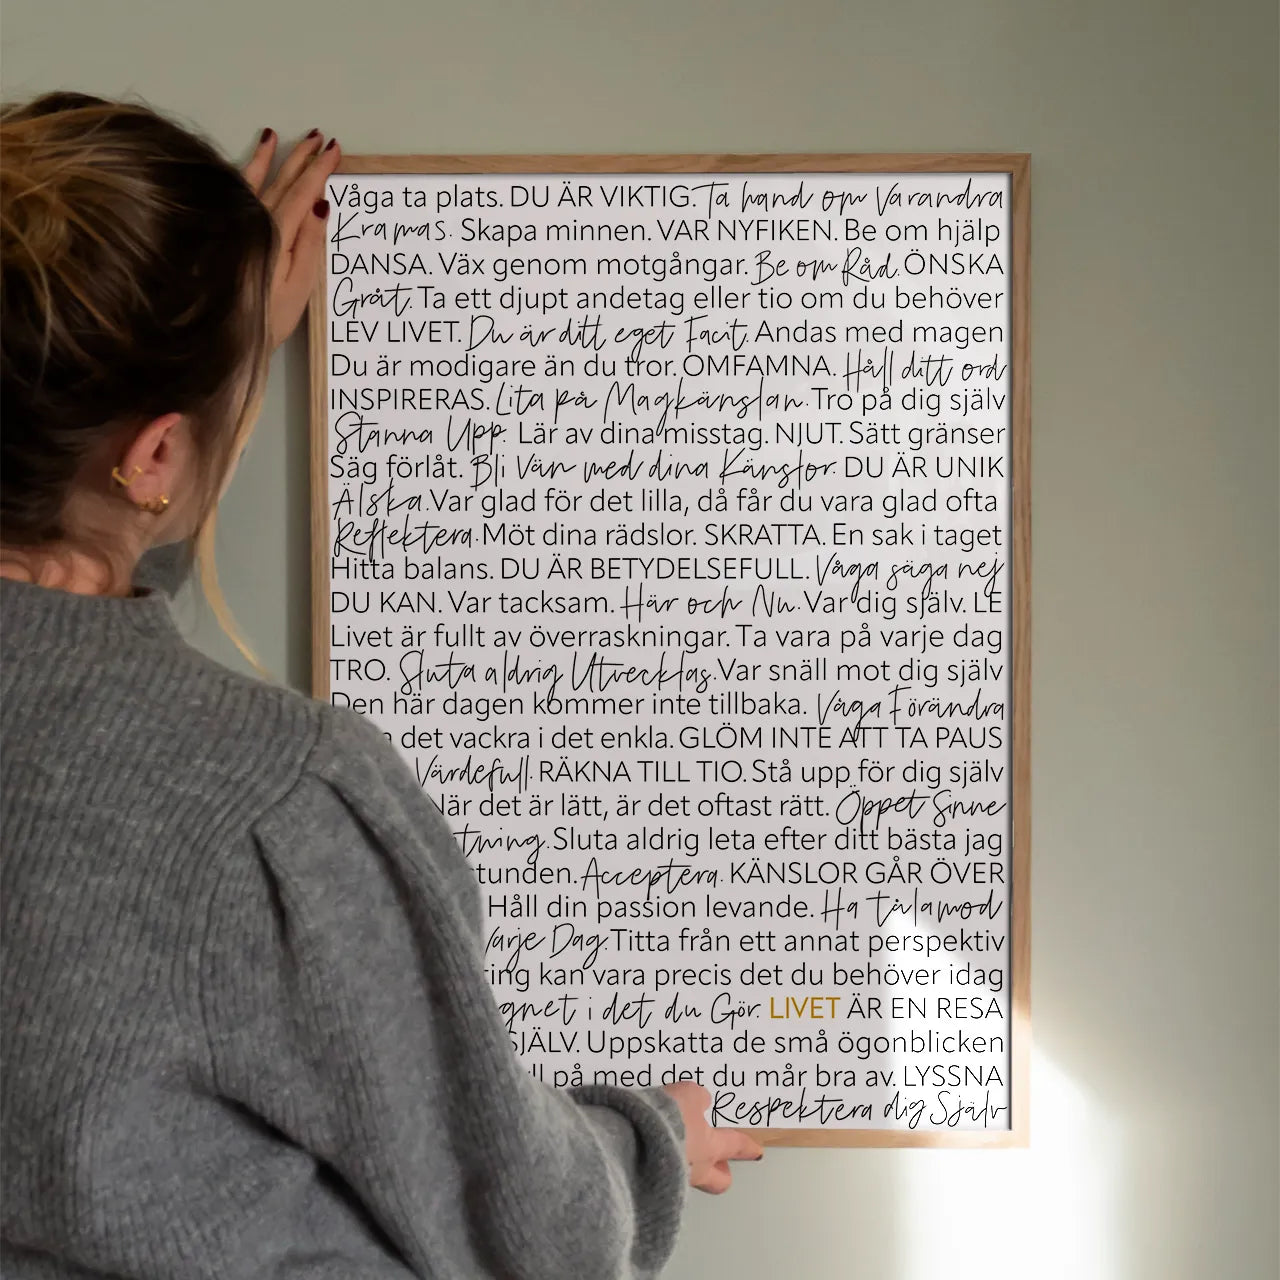 Våga ta plats. DU ÄR VIKTIG. Ta hand om Varandra
Kramas. Skapa minnen. VAR NYFIKEN. Be om hjälp
DANSA. Väx genom motgångar. Be om Råd. ÖNSKA
Gråt. Ta ett djupt andetag eller tio om du behöver
LEV LIVET. Du är ditt eget Facit. Andas med magen
Du är modigare än du tror. OMFAMNA. Håll ditt ord
INSPIRERAS. Lita på Magkänslan. Tro på dig själv
Stanna Upp. Lär av dina misstag. NJUT. Sätt gränser
Säg förlåt. Bli Vän med dina Känslor. DU ÄR UNIK
Älska. Var glad för det lilla, då får du vara glad ofta
Reflektera. Möt dina rädslor. SKRATTA. En sak i taget
Hitta balans. DU ÄR BETYDELSEFULL. Våga säga nej
DU KAN. Var tacksam. Här och Nu. Var dig själv. LE
Livet är fullt av överraskningar. Ta vara på varje dag
TRO. Sluta aldrig Utvecklas. Var snäll mot dig själv
Den här dagen kommer inte tillbaka. Våga Förändra
det vackra i det enkla. GLÖM INTE ATT TA PAUS
Värdefull. RÄKNA TILL TIO. Stå upp för dig själv
När det är lätt, är det oftast rätt. Öppet Sinne
tning. Sluta aldrig leta efter ditt bästa jag
stunden. Acceptera. KÄNSLOR GÅR ÖVER
Håll din passion levande. Ha tålamod
Varje Dag. Titta från ett annat perspektiv
ting kan vara precis det du behöver idag
gnet i det du Gör. LIVET ÄR EN RESA
SJÄLV. Uppskatta de små ögonblicken
på med det du mår bra av. LYSSNA
Respektera dig Själv